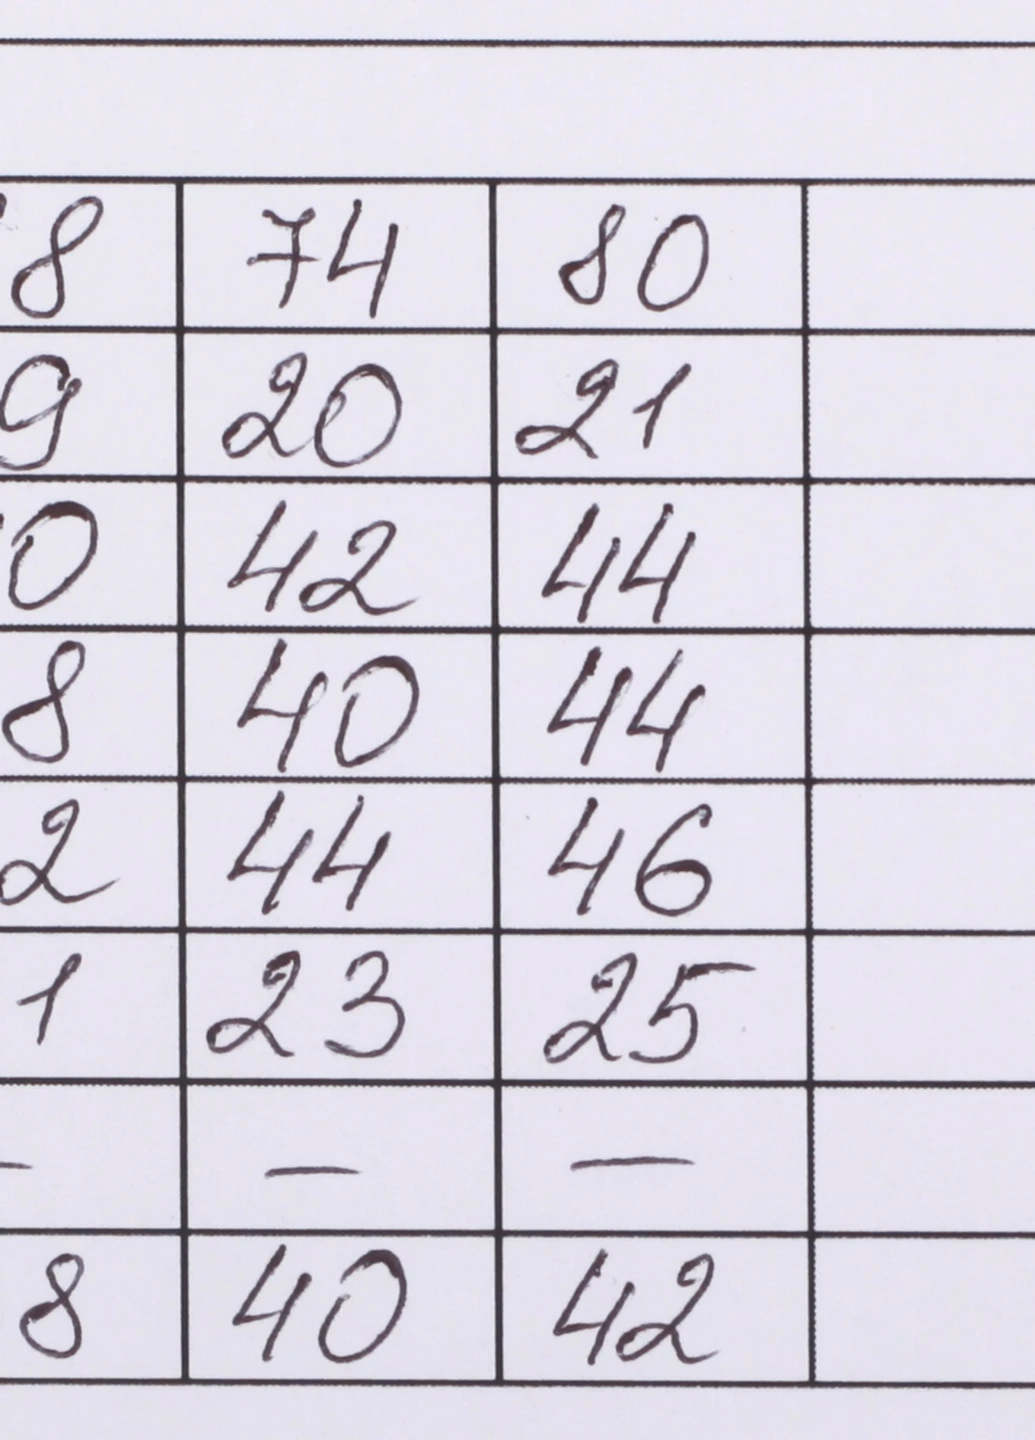 8 74 80
9 20 21
0 42 44
8 40 44
2 44 46
1 23 25
– — —
8 40 42